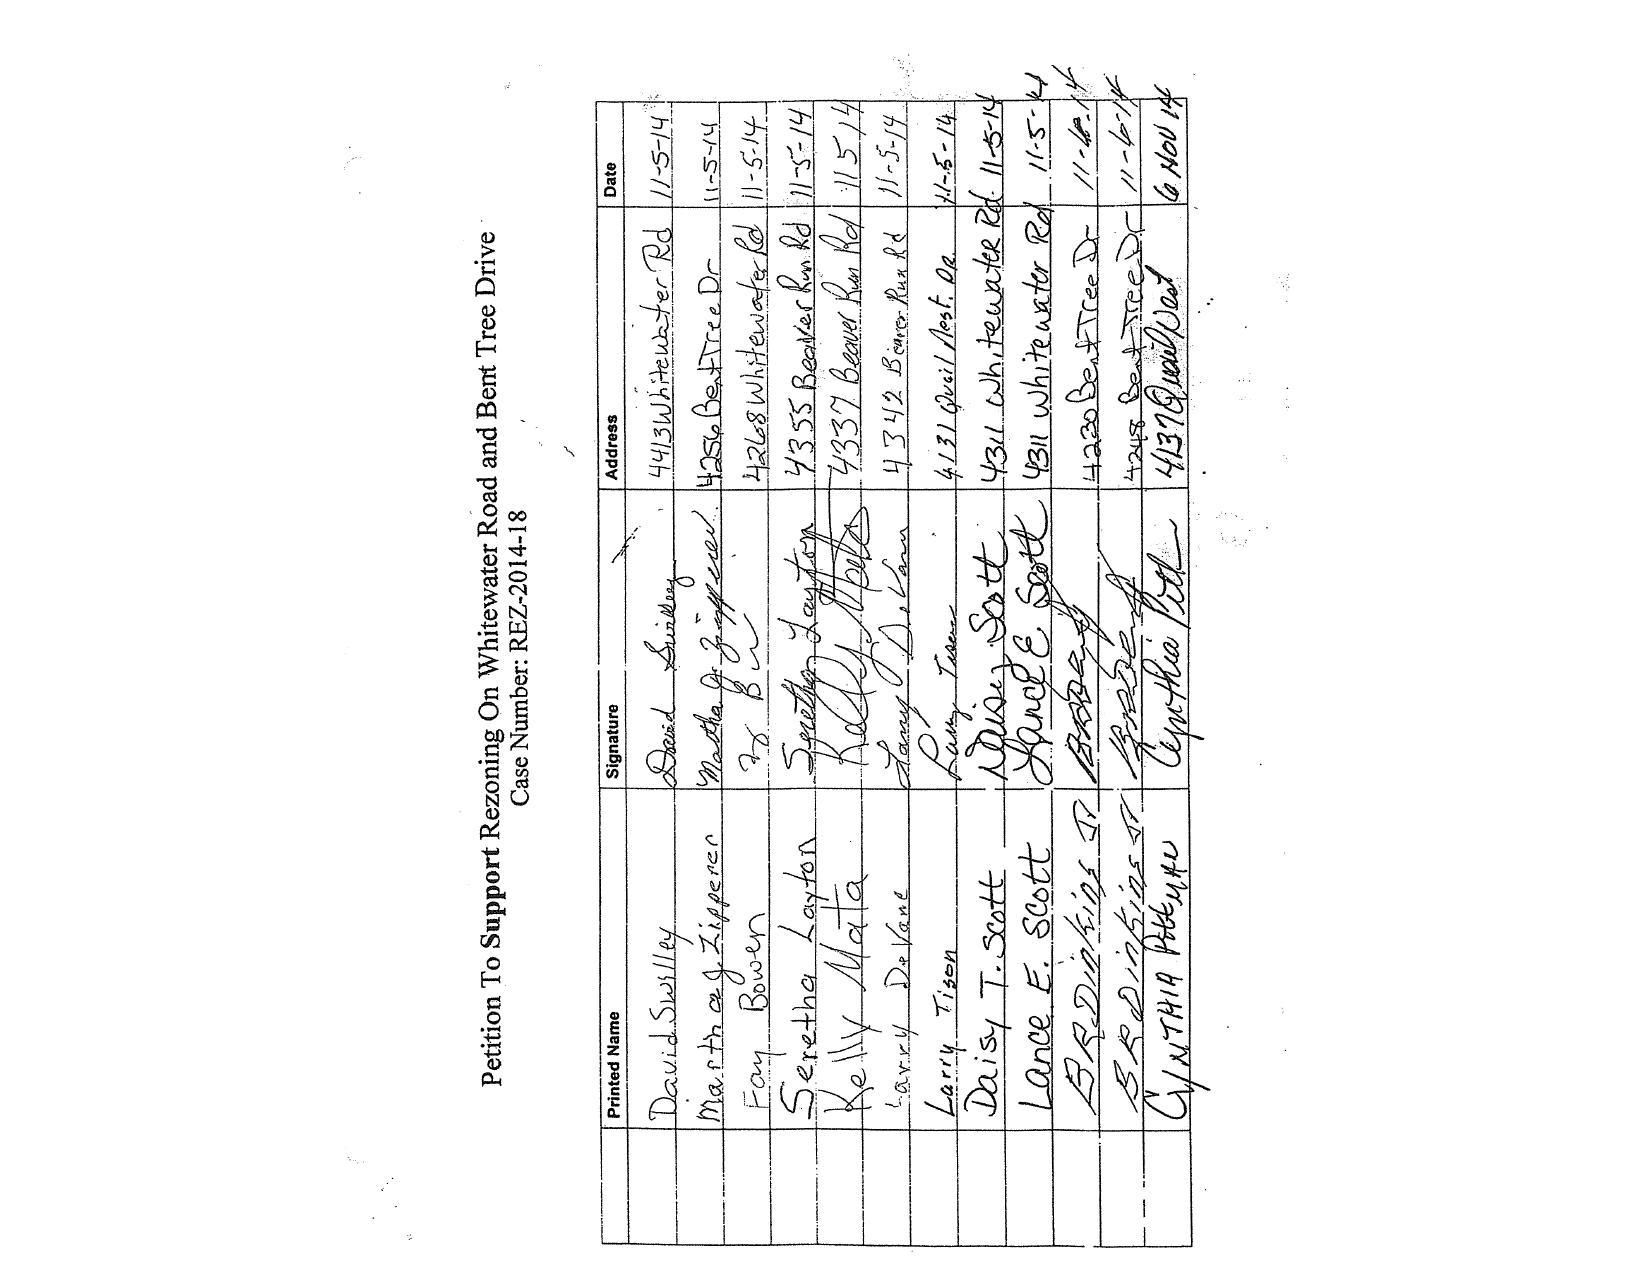 Petition To Support Rezoning On Whitewater Road and Bent Tree Drive
Case Number: REZ-2014-18
Printed Name Signature Address Date
David Swilley David Swilley 4413 Whitewater Rd 11-5-14
Martha J. Zipperer Martha J. Zipperer 4256 Bent Tree Dr 11-5-14
Fay Bowen 4268 Whitewater Rd 11-5-14
Seretha Layton Seretha Layton 4355 Beaver Run Rd 11-5-14
Kelly Mata Kelly Mata 4337 Beaver Run Rd 11 5 14
Larry DeVane Larry DeVane 4342 Beaver Run Rd 11-5-14
Larry Tison Larry Tison 4131 Quail Nest. DR 11-5-14
Daisy T. Scott Daisy Scott 4311 Whitewater Rd. 11-5-14
Lance E. Scott Lance E. Scott 4311 Whitewater Rd 11-5-14
B R Dinkins Jr 4230 Bent Tree Dr 11-6-14
B R Dinkins Jr 4248 Bent Tree Dr 11-6-14
CYNTHIA Pittman Cynthia 4137 Quail 6 NOV 14